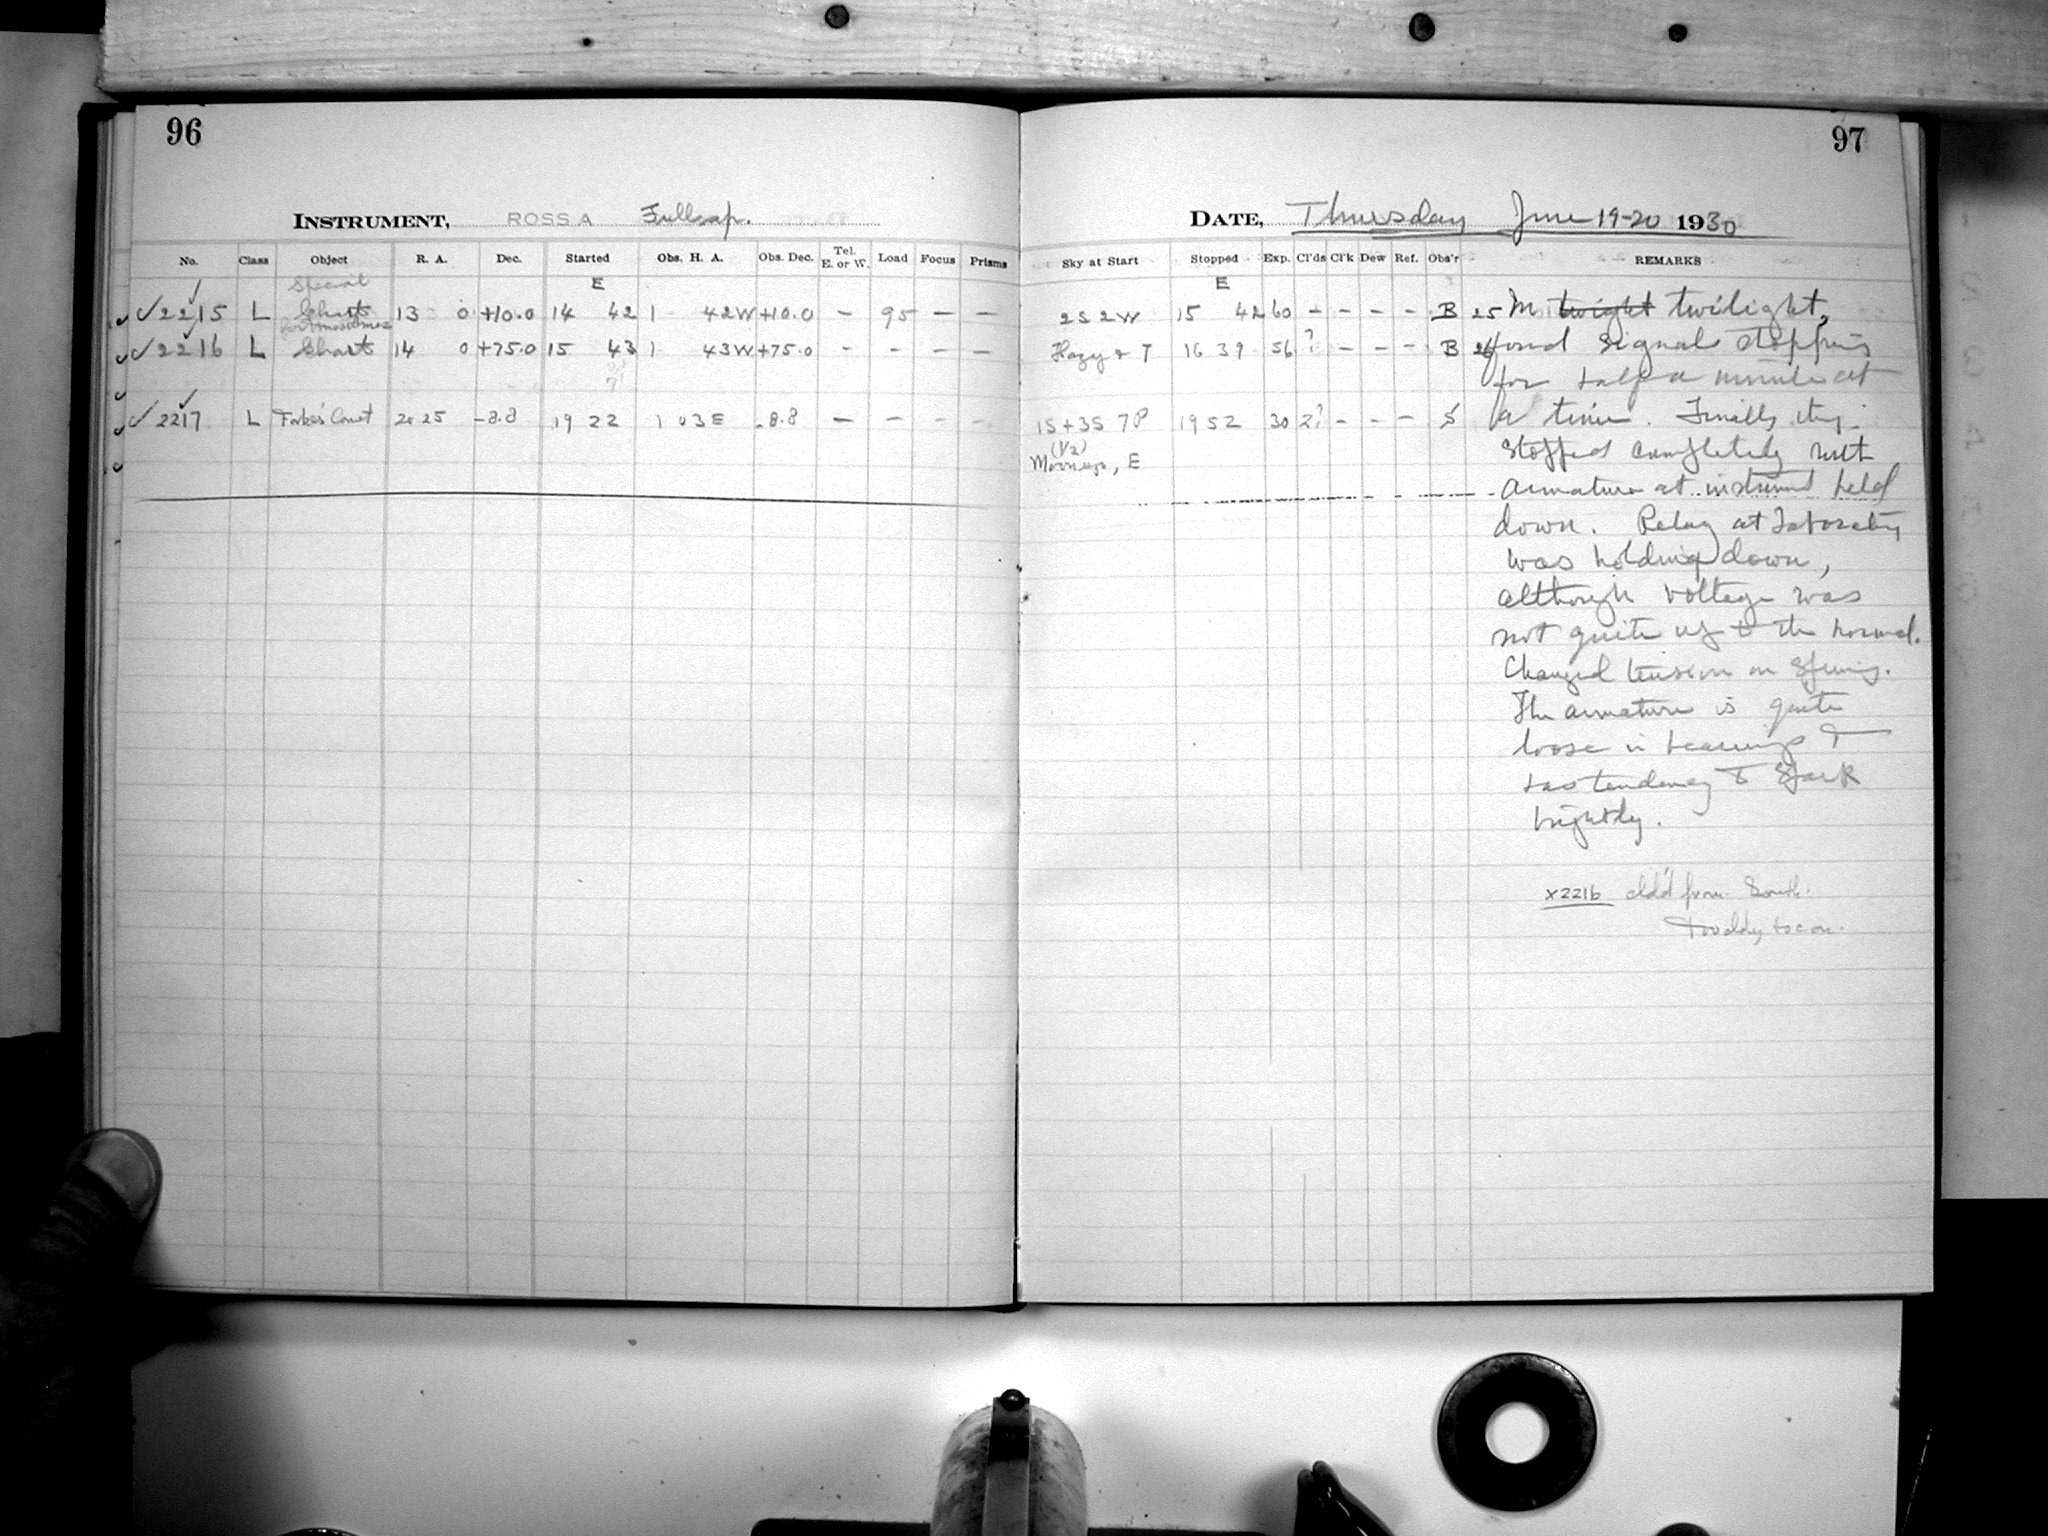 96
97
INSTRUMENT, ROSS A Full ap.
DATE, Thursday June 19-20 1930
No. Class Object R. A. Dec. Started Obs. H. A. Obs. Dec. Tel. E. or W. Load Focus Prisms
Sky at Start Stopped Exp. Cl'ds Cl'k Dew Ref. Obs'r REMARKS
Special E E
2215 L Charts 13 0 +10.0 14 42 1 42W +10.0 – 95 – – 2S 2W 15 42 60 – – – – B 25 M twight twilight,
2216 L Charts 14 0 +75.0 15 43 1 43W +75.0 – – – – Hazy & T 16 39 56 ? – – – B 26 found signal stopping
for half a minute at
2217 L Forbes' Comet 20 25 -8.8 19 22 1 03E -8.8 – – – – 1S+3S 7P 19 52 30 2? – – – S a time. Finally
(1/2)
Moon, E
stopped completely with
armature at instrument held
down. Relay at Laboratory
was holding down,
although voltage was
not quite up to the normal.
Changed tension on spring.
The armature is quite
loose in bearings &
has tendency to spark
brightly.
X2216 cld'd from South.